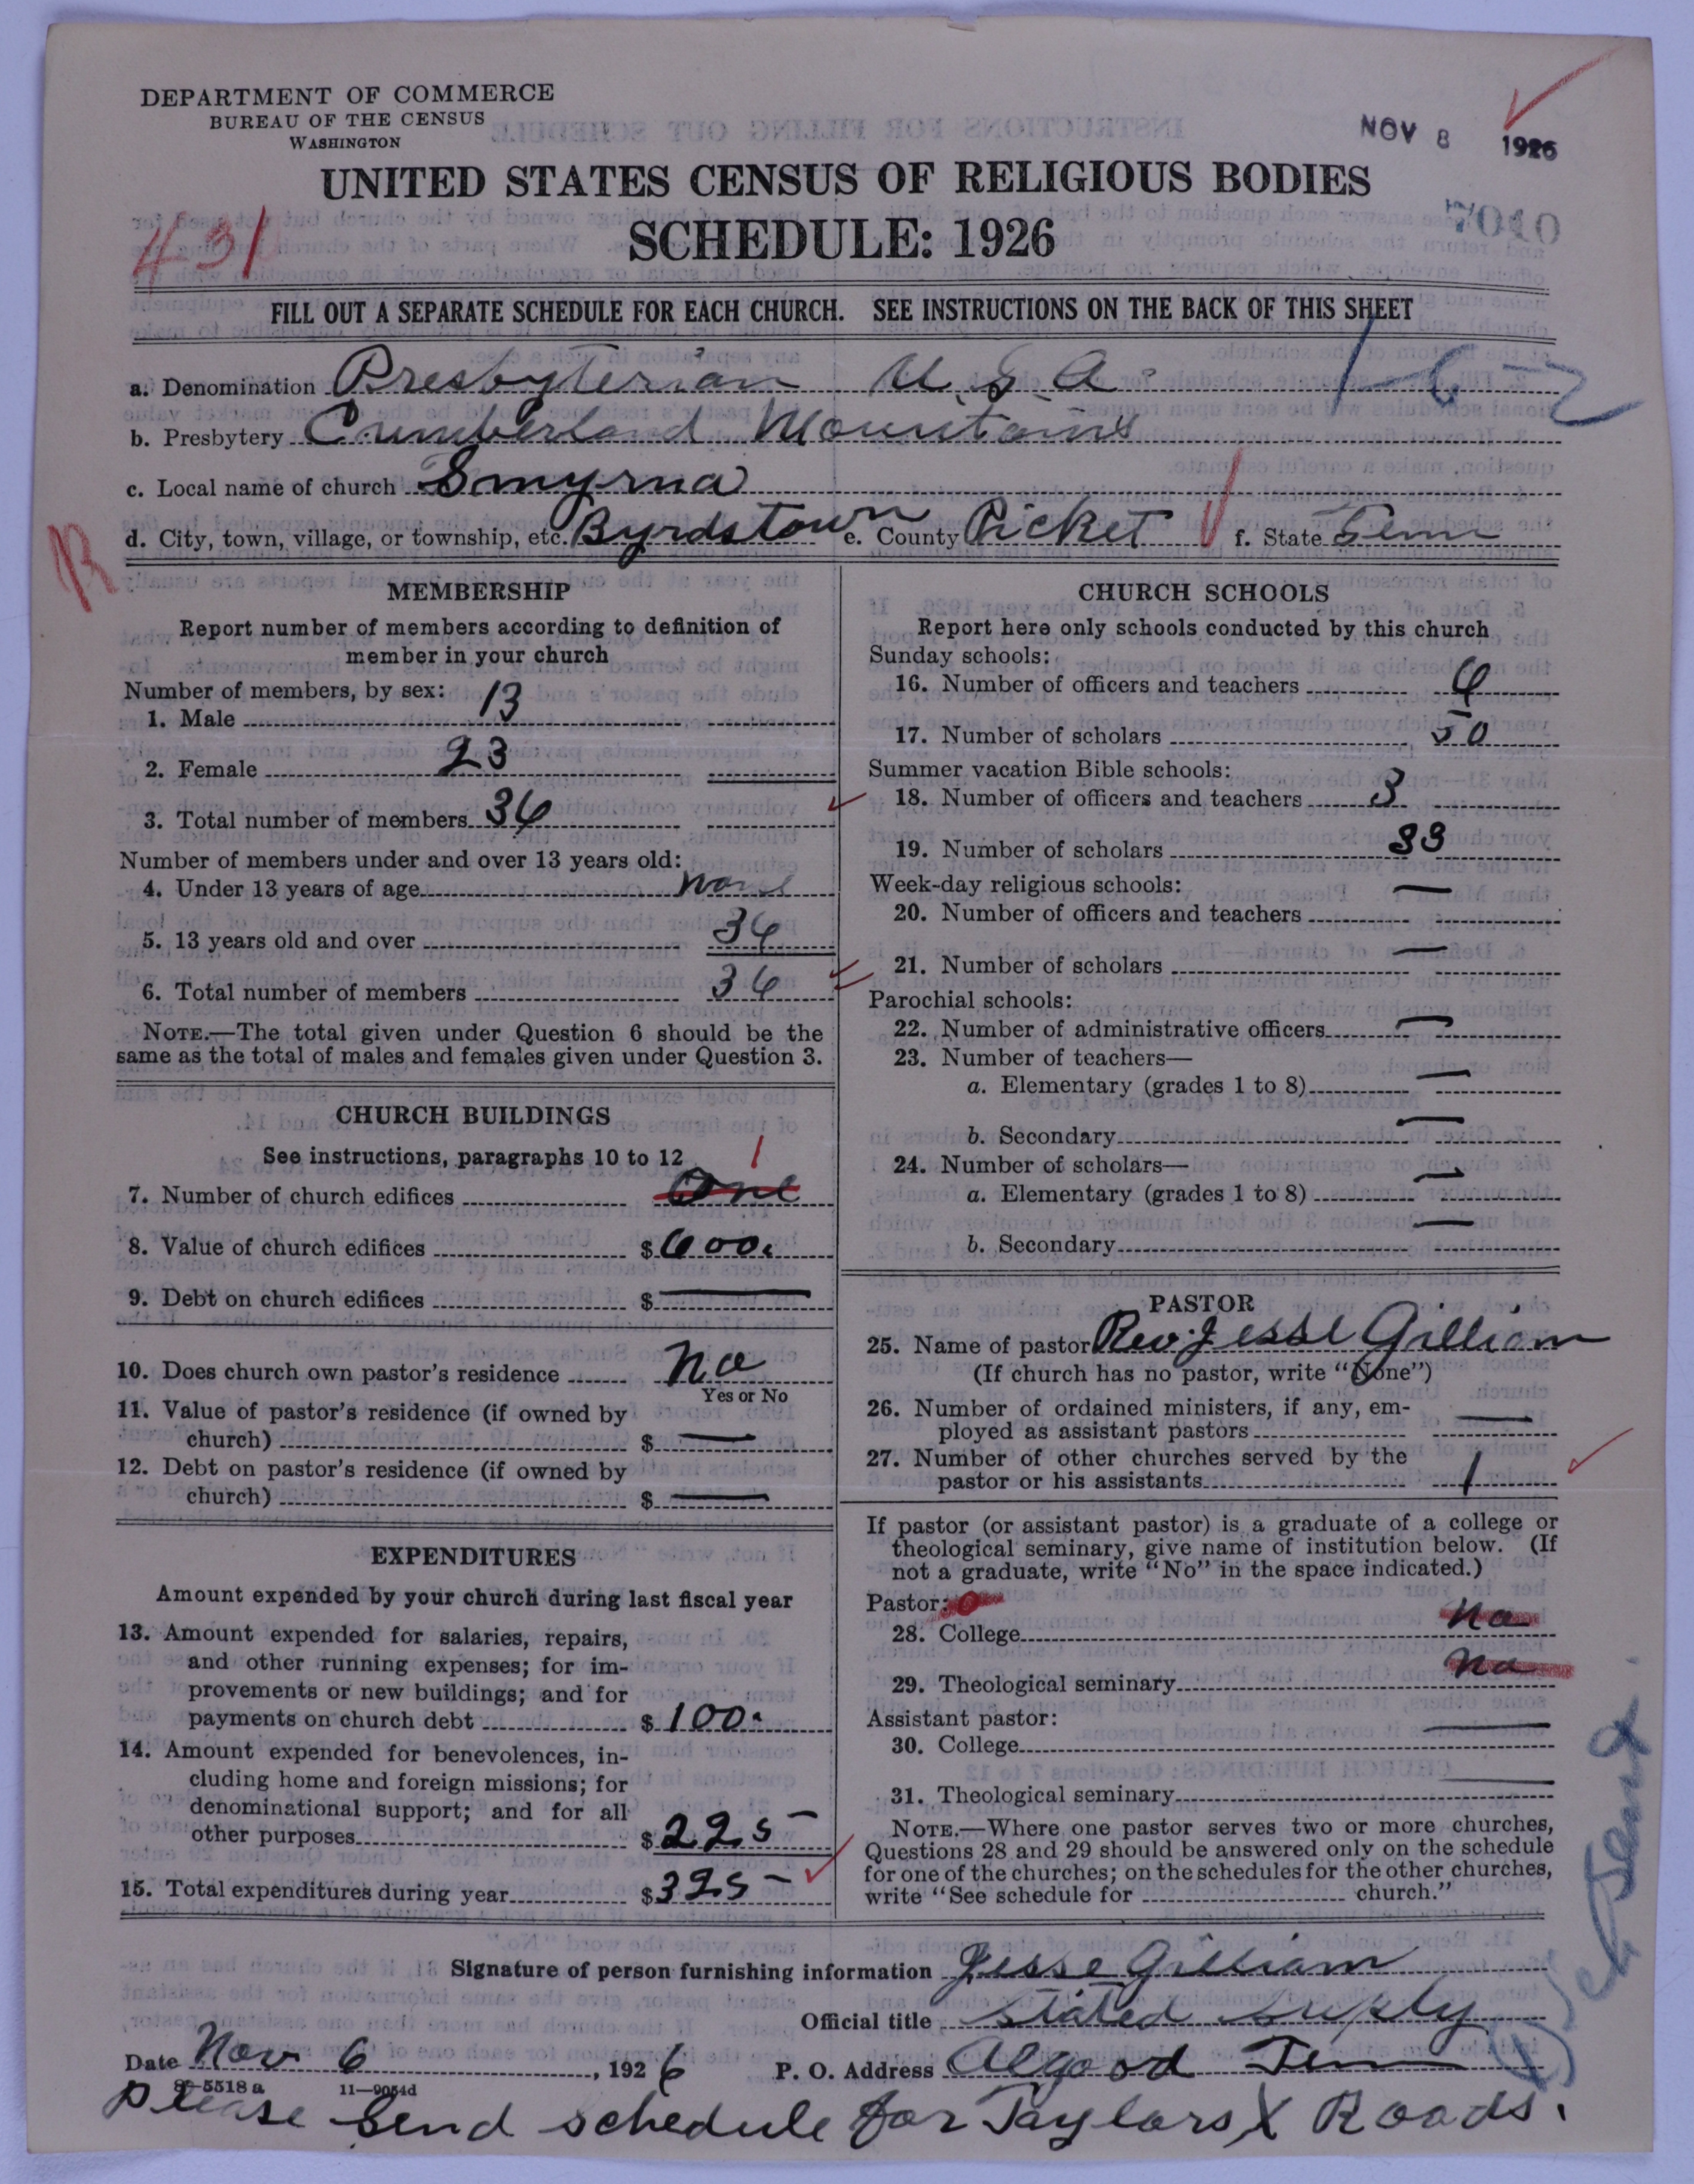 DEPARTMENT OF COMMERCE
BUREAU OF THE CENSUS
WASHINGTON
NOV 8 1926
UNITED STATES CENSUS OF RELIGIOUS BODIES
SCHEDULE: 1926
431
7010
FILL OUT A SEPARATE SCHEDULE FOR EACH CHURCH. SEE INSTRUCTIONS ON THE BACK OF THIS SHEET
a. Denomination Presbyterian U.S.A.
b. Presbytery Cumberland Mountains
c. Local name of church Smyrna
d. City, town, village, or township, etc. Byrdstown e. County Picket f. State Tenn
R
MEMBERSHIP
Report number of members according to definition of
member in your church
Number of members, by sex:
1. Male 13
2. Female 23
3. Total number of members 36
Number of members under and over 13 years old:
4. Under 13 years of age none
5. 13 years old and over 36
6. Total number of members 36
NOTE.—The total given under Question 6 should be the
same as the total of males and females given under Question 3.
CHURCH BUILDINGS
See instructions, paragraphs 10 to 12
1
7. Number of church edifices One
8. Value of church edifices $600.
9. Debt on church edifices $—
10. Does church own pastor's residence No
Yes or No
11. Value of pastor's residence (if owned by
church) $—
12. Debt on pastor's residence (if owned by
church) $—
EXPENDITURES
Amount expended by your church during last fiscal year
13. Amount expended for salaries, repairs,
and other running expenses; for im-
provements or new buildings; and for
payments on church debt $100.
14. Amount expended for benevolences, in-
cluding home and foreign missions; for
denominational support; and for all
other purposes $225-
15. Total expenditures during year $325-
CHURCH SCHOOLS
Report here only schools conducted by this church
Sunday schools:
16. Number of officers and teachers 6
17. Number of scholars 50
Summer vacation Bible schools:
18. Number of officers and teachers 3
19. Number of scholars 33
Week-day religious schools:
20. Number of officers and teachers —
21. Number of scholars —
Parochial schools:
22. Number of administrative officers —
23. Number of teachers—
a. Elementary (grades 1 to 8) —
b. Secondary —
24. Number of scholars—
a. Elementary (grades 1 to 8) —
b. Secondary —
PASTOR
25. Name of pastor Rev. Jesse Gilliam
(If church has no pastor, write "None")
26. Number of ordained ministers, if any, em-
ployed as assistant pastors —
27. Number of other churches served by the
pastor or his assistants 1
If pastor (or assistant pastor) is a graduate of a college or
theological seminary, give name of institution below. (If
not a graduate, write "No" in the space indicated.)
Pastor: 0
28. College No
29. Theological seminary No
Assistant pastor:
30. College —
31. Theological seminary —
NOTE.—Where one pastor serves two or more churches,
Questions 28 and 29 should be answered only on the schedule
for one of the churches; on the schedules for the other churches,
write "See schedule for church."
Signature of person furnishing information Jesse Gilliam
Official title Stated Suply
Date Nov 6, 1926 P. O. Address Algood Tenn
11—9054d
Please Send schedule for Taylors X Roads.